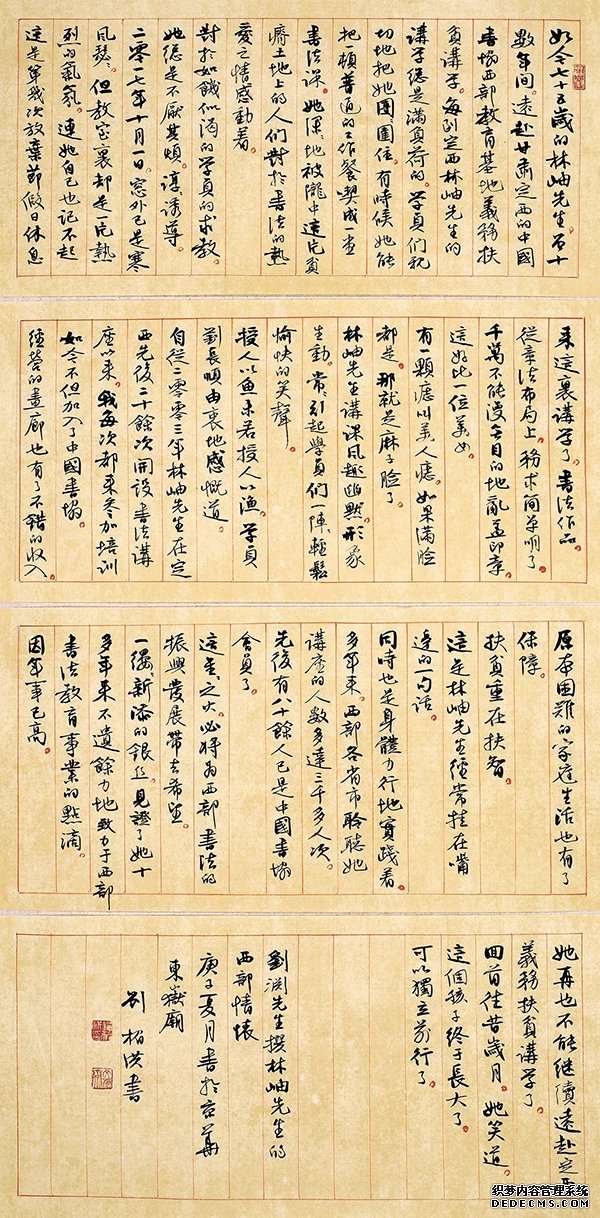 如今七十五歲的林岫先生。曾十
數年間。遠赴甘肅定西的中國
書協西部教育基地義務扶
貧講學。每到定西林岫先生的
講學總是滿負荷的。學員們親
切地把她團々圍住。有時候她能
把一頓普通的工作餐變成一堂
書法課。她深々地被隴中這片貧
瘠土地上的人們對於書法的熱
愛之情感動着。
對於如飢似渴的學員的求教
她總是不厭其煩。諄々誘導。
二零一七年十月一日。窗外已是寒
風瑟々。但教室裏却是一片熱
烈的氣氛。連她自己也記不起
這是第幾次放棄節假日休息
來這裏講學了。書法作品
從章法布局上。務求簡單明了。
千萬不能漫無目的地亂蓋印章。
這好比一位美女。
有一顆痣叫美人痣。如果滿臉
都是。那就是麻子臉了。
林岫先生講課風趣幽默。形象
生動。常々引起學員們一陣々輕鬆
愉快的笑聲。
授人以魚不若授人以漁。學員
劉長順由衷地感慨道。
自從二零零三年林岫先生在定
西先後二十餘次開設書法講
座以來。我每次都來參加培訓
如今不但加入了中國書協。
經營的畫廊也有了不錯的收入
原本困難的家庭生活也有了
保障。
扶貧重在扶智。
這是林岫先生經常挂在嘴
邊的一句話。
同時也是身體力行地實踐着。
多年來。西部各省市聆聽她
講座的人數多達三千多人次。
先後有八十餘人已是中國書協
會員了。
這星々之火。必將爲西部書法的
振興發展帶去希望
一縷新添的銀絲。見證了她十
多年來不遺餘力地致力于西部
書法教育事業的點滴。
因年事已高。
她再也不能继續遠赴定西
義務扶貧講學了。
回首往昔歲月。她笑道。
這個孩子終于長大了。
可以獨立前行了。
劉淵先生撰林岫先生的
西部情懷
庚子夏月書於京華
東嶽廟
劉栢洪書
织梦内容管理系统
DEDECMS.COM